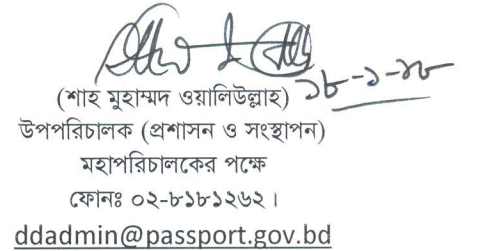 (শাহ মুহাম্মদ ওয়ালিউল্লাহ) ১৮-১-১৮
উপপরিচালক (প্রশাসন ও সংস্থাপন)
মহাপরিচালকের পক্ষে
ফোনঃ ০২-৮১৮১২৬২।
ddadmin@passport.gov.bd